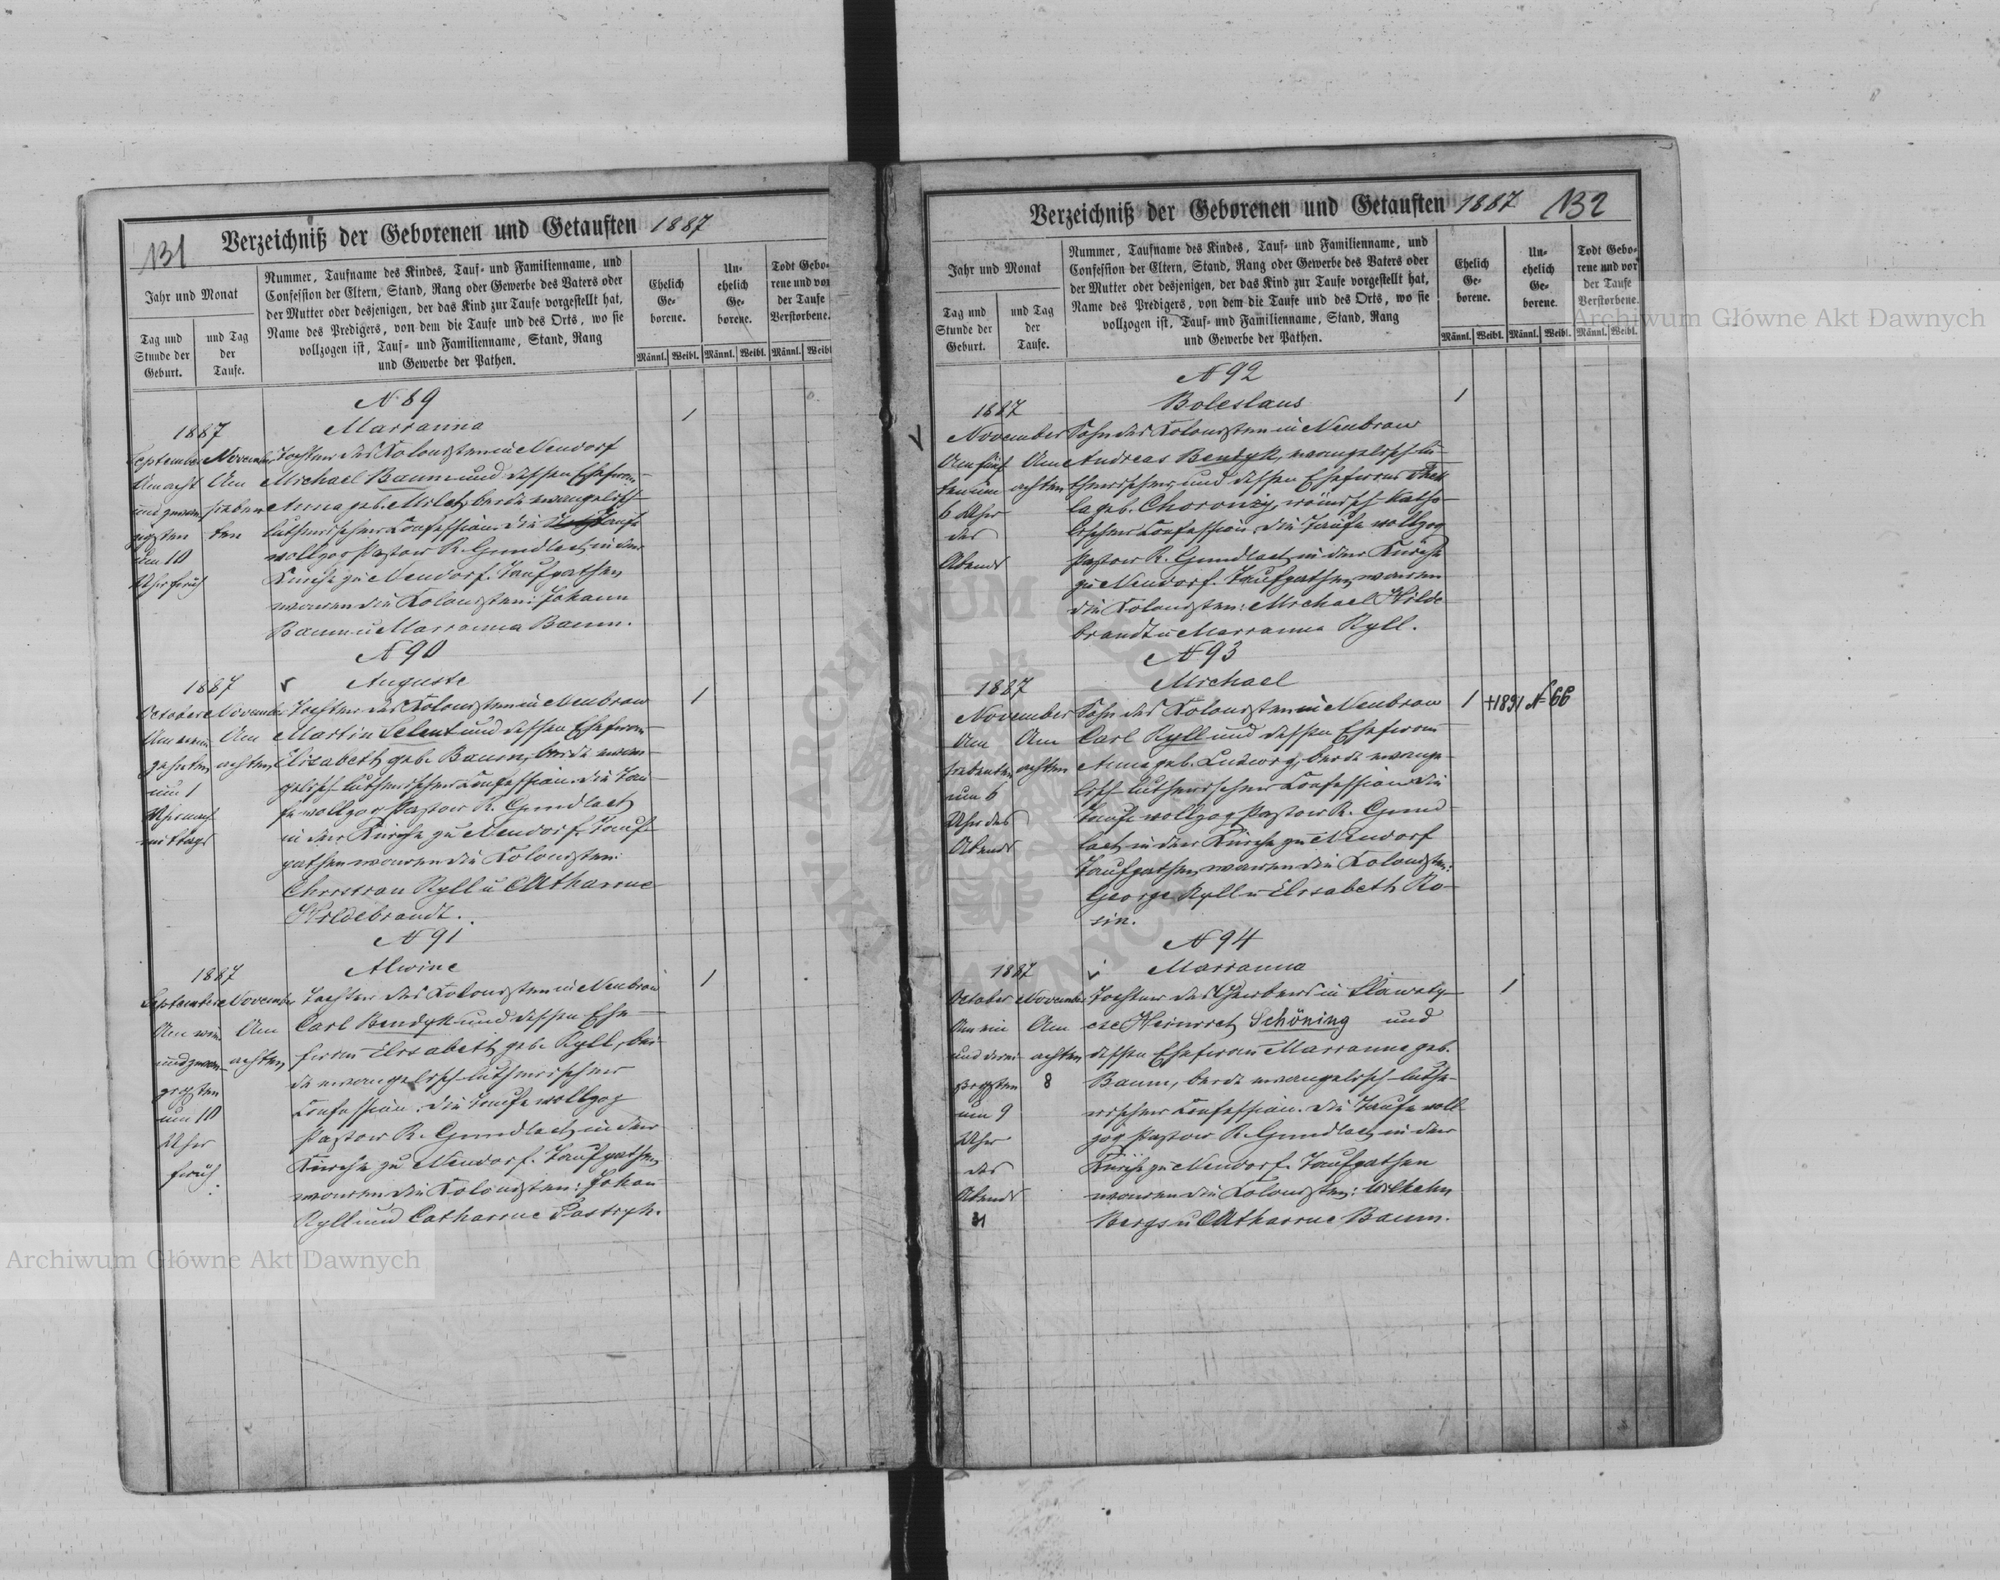 131 Verzeichniß der Geborenen und Getauften 1887
Jahr und Monat
Tag und Stunde der Geburt.
und Tag der Taufe.
Nummer, Taufname des Kindes, Tauf- und Familienname, und
Confession der Eltern, Stand, Rang oder Gewerbe des Vaters oder
der Mutter oder desjenigen, der das Kind zur Taufe vorgestellt hat,
Name des Predigers, von dem die Taufe und des Orts, wo sie
vollzogen ist, Tauf- und Familienname, Stand, Rang
und Gewerbe der Pathen.
Ehelich Geborene.
Unehelich Geborene.
Todt Geborene und vor der Taufe Verstorbene.
Männl. Weibl. Männl. Weibl. Männl. Weibl.
N 89
1887
September
Am acht
und zwan
zigsten
um 10
Uhr früh
November
Am
sieben
ten
Marianna
Tochter des Kolonisten in Neudorf
Michael Baum und dessen Ehefrau
Anna geb. Miletz, beide evangelisch
lutherischer Confession. Die Taufe
vollzog Pastor R. Gundlach in der
Kirche zu Neudorf. Taufpathen
waren die Kolonisten: Johann
Baum u Marianna Baum.
1
N 90
1887
October
Am neun
zehnten
um 1
Uhr nach
mittags
November
Am
achten
Auguste
Tochter des Kolonisten in Neubrow
Martin Selent und dessen Ehefrau
Elisabeth geb. Baum, beide evan-
gelisch lutherischer Confession. Die Tau-
fe vollzog Pastor R. Gundlach
in der Kirche zu Neudorf. Tauf-
pathen waren die Kolonisten:
Christian Ryll u Catharine
Hildebrandt.
1
N 91
1887
September
Am ein
und zwan-
zigsten
um 10
Uhr
früh.
November
Am
achten
Alwine
Tochter des Kolonisten in Neubrow
Carl Bendyk und dessen Ehe-
frau Elisabeth geb. Ryll, bei-
de evangelisch-lutherischer
Confession. Die Taufe vollzog
Pastor R. Gundlach in der
Kirche zu Neudorf. Taufpathen
waren die Kolonisten: Johan
Ryll und Catharine Pastryk.
1
Verzeichniß der Geborenen und Getauften 1887 132
Jahr und Monat
Tag und Stunde der Geburt.
und Tag der Taufe.
Nummer, Taufname des Kindes, Tauf- und Familienname, und
Confession der Eltern, Stand, Rang oder Gewerbe des Vaters oder
der Mutter oder desjenigen, der das Kind zur Taufe vorgestellt hat,
Name des Predigers, von dem die Taufe und des Orts, wo sie
vollzogen ist, Tauf- und Familienname, Stand, Rang
und Gewerbe der Pathen.
Ehelich Geborene.
Unehelich Geborene.
Todt Geborene und vor der Taufe Verstorbene.
Männl. Weibl. Männl. Weibl. Männl. Weibl.
N 92
1887
November
Am fünf
ten um
6 Uhr
des
Abends
Am
achten
Boleslaus
Sohn des Kolonisten in Neubrow
Andreas Bendyk, evangelisch lu-
therischer, und dessen Ehefrau Thek
la geb. Choronzy, römisch-katho-
lischer Confession. Die Taufe vollzog
Pastor R. Gundlach in der Kirche
zu Neudorf. Taufpathen waren
die Kolonisten: Michael Hilde
brandt u Marianna Ryll.
1
N 93
1887
November
Am
siebenten
um 6
Uhr des
Abends
Am
achten
Michael
Sohn des Kolonisten in Neubrow
Carl Ryll und dessen Ehefrau
Anna geb. Ludwig, beide evange-
lisch-lutherischer Confession. Die
Taufe vollzog Pastor R. Gund-
lach in der Kirche zu Neudorf
Taufpathen waren die Kolonisten:
George Ryll u Elisabeth Ro-
sin.
1 +1891 N 66
N 94
1887
October
Am ein
und drei-
ßigsten
um 9
Uhr
des
Abends
31
November
Am
achten
8
Marianna
Tochter des Gerbers in Slawaty-
cze Heinrich Schöning und
dessen Ehefrau Marianna geb.
Baum, beide evangelisch-luthe-
rischer Confession. Die Taufe voll-
zog Pastor R. Gundlach in der
Kirche zu Neudorf. Taufpathen
waren die Kolonisten: Wilhelm
Bergs u Catharine Baum.
1
Archiwum Główne Akt Dawnych
Archiwum Główne Akt Dawnych